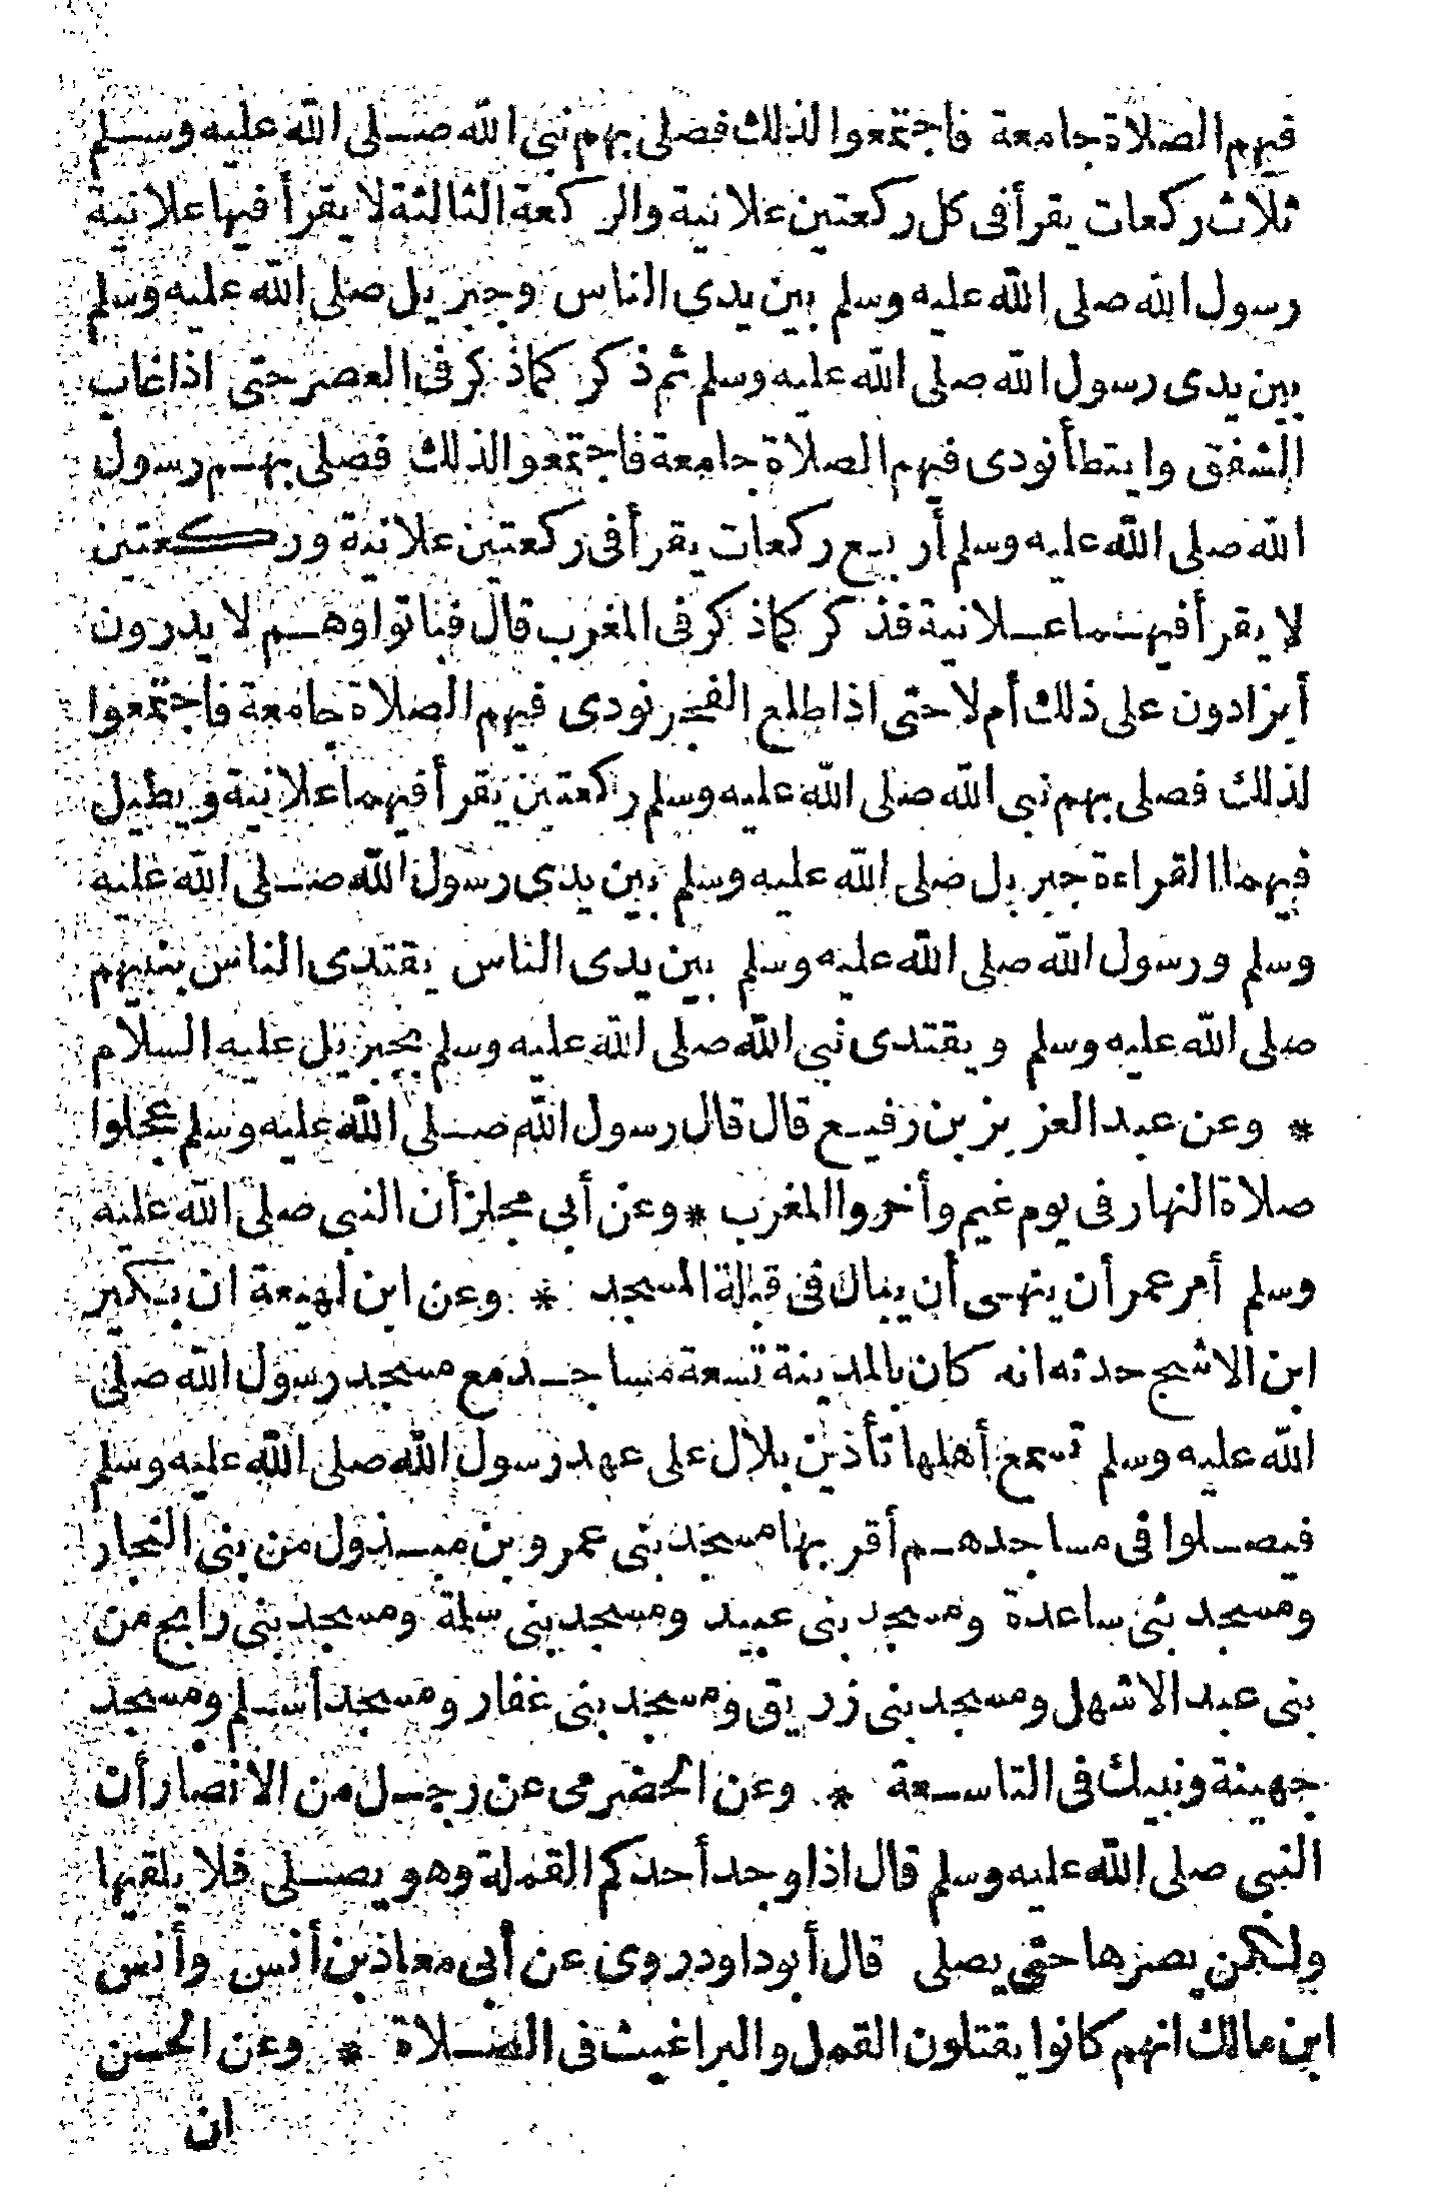 فيهم الصلاة جامعة فاجتمعوا لذلك فصلى بهم نبي الله صلى الله عليه وسلم
ثلاث ركعات يقرأ فى كل ركعتين علانية والركعة الثالثة لا يقرأ فيها علانية
رسول الله صلى الله عليه وسلم بين يدى الناس وجبريل صلى الله عليه وسلم
بين يدى رسول الله صلى الله عليه وسلم ثم ذكر كما ذكر فى العصر حتى اذا غاب
الشفق وابتطأ نودى فيهم الصلاة جامعة فاجتمعوا لذلك فصلى بهم رسول
الله صلى الله عليه وسلم أربع ركعات يقرأ فى ركعتين علانية وركعتين
لا يقرأ فيهما علانية فذكر كما ذكر فى المغرب قال فباتوا وهم لا يدرون
أيزادون على ذلك أم لا حتى اذا طلع الفجر نودى فيهم الصلاة جامعة فاجتمعوا
لذلك فصلى بهم نبى الله صلى الله عليه وسلم ركعتين يقرأ فيهما علانية ويطيل
فيهما القراءة جبريل صلى الله عليه وسلم بين يدى رسول الله صلى الله عليه
وسلم ورسول الله صلى الله عليه وسلم بين يدى الناس يقتدى الناس بنبيهم
صلى الله عليه وسلم ويقتدى نبى الله صلى الله عليه وسلم بجبريل عليه السلام
* وعن عبد العزيز بن رفيع قال قال رسول الله صلى الله عليه وسلم عجلوا
صلاة النهار فى يوم غيم وأخروا المغرب * وعن أبى مجلز أن النبى صلى الله عليه
وسلم أمر عمر أن ينهى أن يبال فى قبلة المسجد * وعن ابن لهيعة ان بكير
ابن الاشج حدثه انه كان بالمدينة تسعة مساجد مع مسجد رسول الله صلى
الله عليه وسلم تسمع أهلها تأذين بلال على عهد رسول الله صلى الله عليه وسلم
فيصلوا فى مساجدهم أقربها مسجد بنى عمرو بن مبذول من بنى النجار
ومسجد بنى ساعدة ومسجد بنى عبيد ومسجد بنى سلمة ومسجد بنى رابج من
بنى عبد الاشهل ومسجد بنى زريق ومسجد بنى غفار ومسجد أسلم ومسجد
جهينة ونبيك فى التاسعة * وعن الحضرمى عن رجل من الانصار أن
النبى صلى الله عليه وسلم قال اذا وجد أحدكم القملة وهو يصلى فلا يلقيها
ولكن يصرها حتى يصلى قال أبو داود روى عن أبى معاذ بن أنس وأنس
ابن مالك انهم كانوا يقتلون القمل والبراغيث فى الصلاة * وعن الحسن
ان